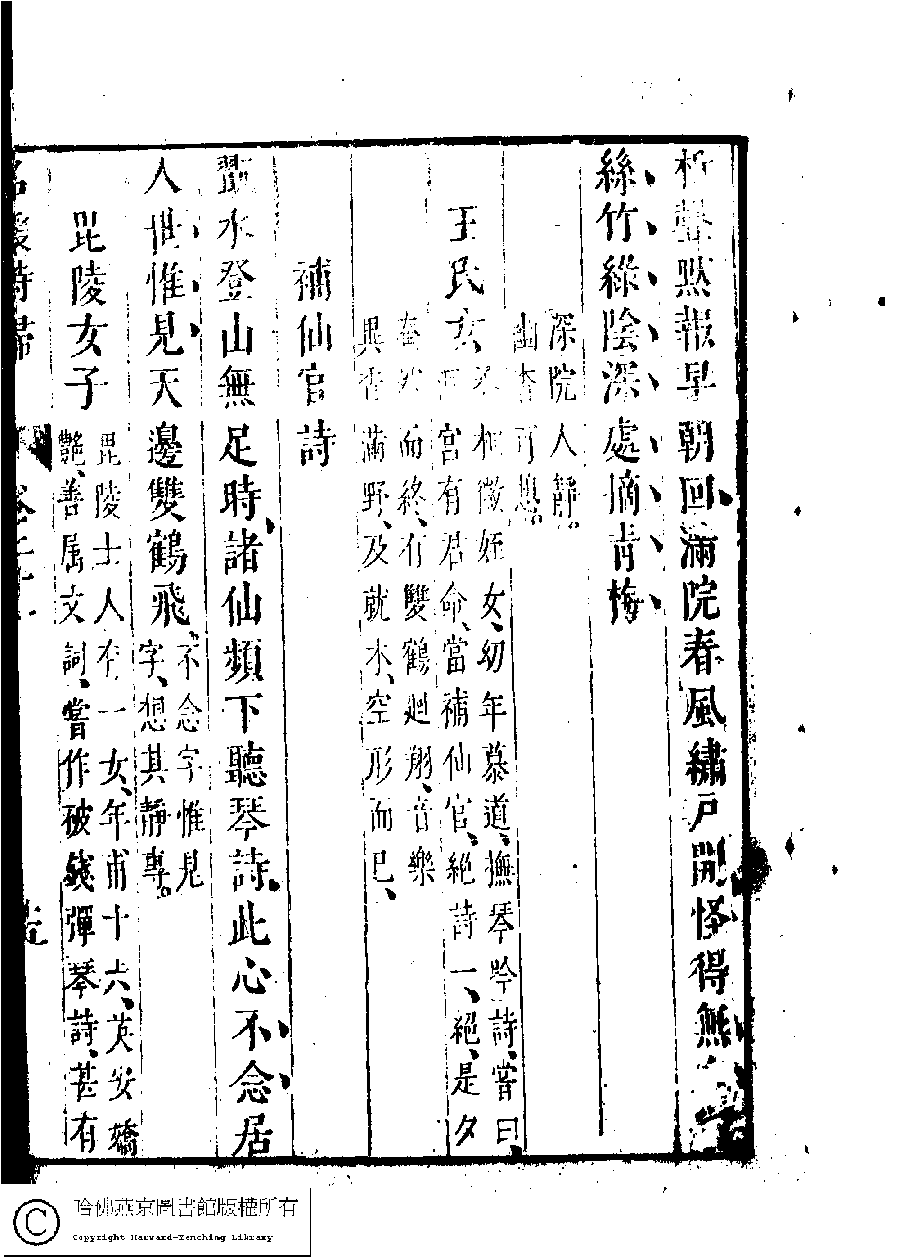 柝聲黙報早朝回滿院春風繡戶開怪得無
絲竹綠陰深處摘青梅
深院人靜
幽杳可想
王氏女
徽姪女幼年慕道撫琴吟詩嘗曰
宮有君命當補仙官絕詩一絕是夕
奄然而終有雙鶴廻翔音樂
異香滿野及就木空形而已
補仙官詩
翫水登山無足時諸仙頻下聽琴詩此心不念居
人世惟見天邊雙鶴飛
不念字惟見
字想其靜專
毘陵女子
毘陵士人有一女年甫十六英安嬌
艷善属文詞嘗作破錢彈琴詩甚有
名媛詩歸
哈佛燕京圖書館版權所有
Copyright Harvard-Yenching Library